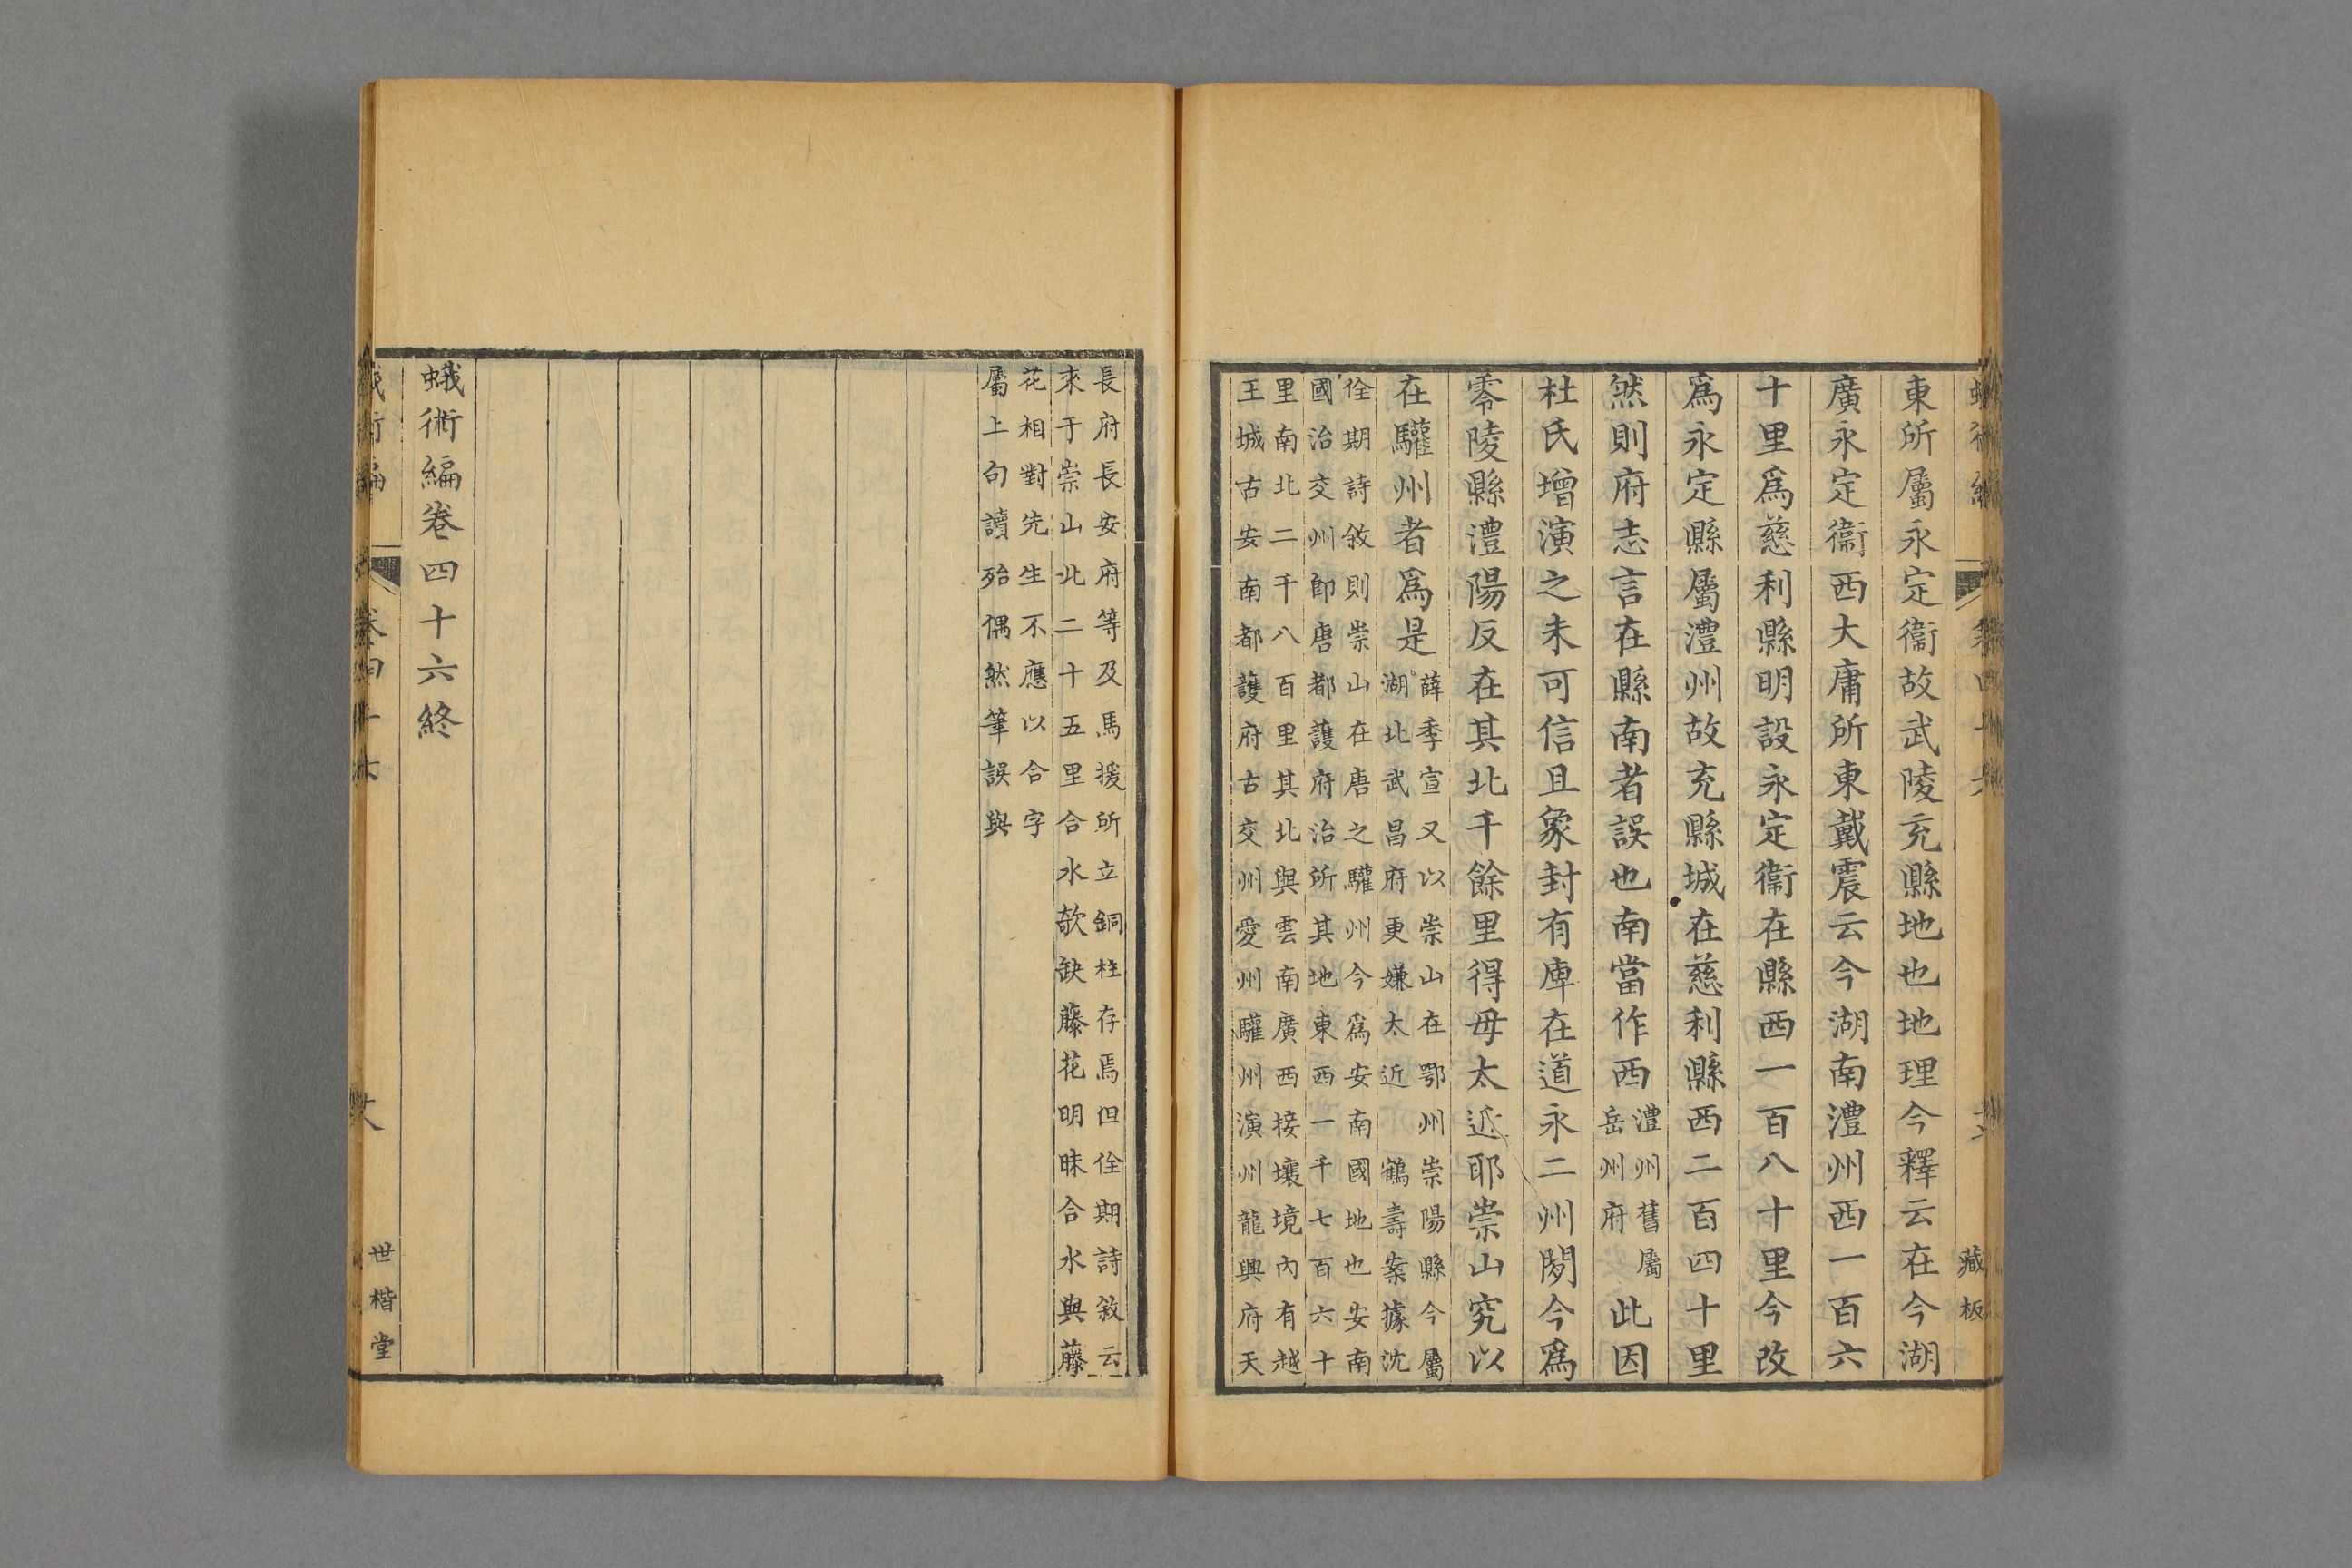 藏板
東所屬永定衞故武陵充縣地也地理今釋云在今湖
廣永定衞西大庸所東戴震云今湖南澧州西一百六
十里爲慈利縣明設永定衞在縣西一百八十里今改
爲永定縣屬澧州故充縣城在慈利縣西二百四十里
然則府志言在縣南者誤也南當作西
澧州舊屬
岳州府
此因
杜氏增演之未可信且象封有庳在道永二州閒今爲
零陵縣澧陽反在其北千餘里得毋太近耶崇山究以
在驩州者爲是
薛季宣又以崇山在鄂州崇陽縣今屬
湖北武昌府更嫌太近鶴壽案據沈
佺期詩敘則崇山在唐之驩州今爲安南國地也安南
國治交州卽唐都護府治所其地東西一千七百六十
里南北二千八百里其北與雲南廣西接壤境內有越
王城古安南都護府古交州愛州驩州演州龍興府天
長府長安府等及馬援所立銅柱存焉但佺期詩敘云
來于崇山北二十五里合水欹缺藤花明昧合水與藤
花相對先生不應以合字
屬上句讀殆偶然筆誤與
蛾術編卷四十六終
世楷堂